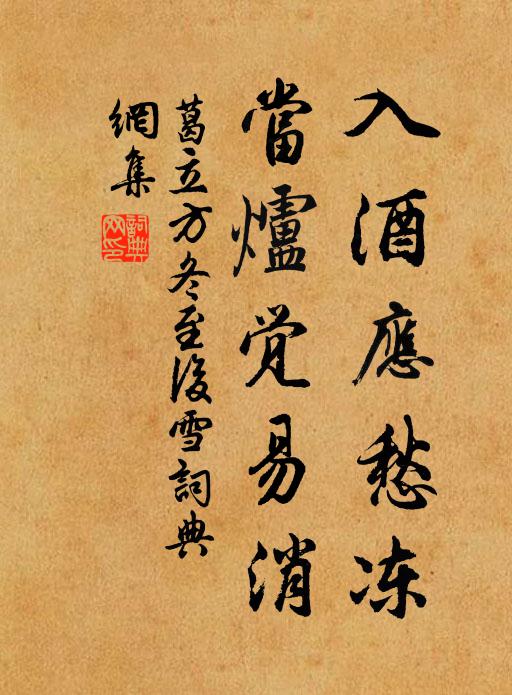 入酒應愁冻
當爐觉易消
葛立方冬至後雪詞典
網集
詞典
网印